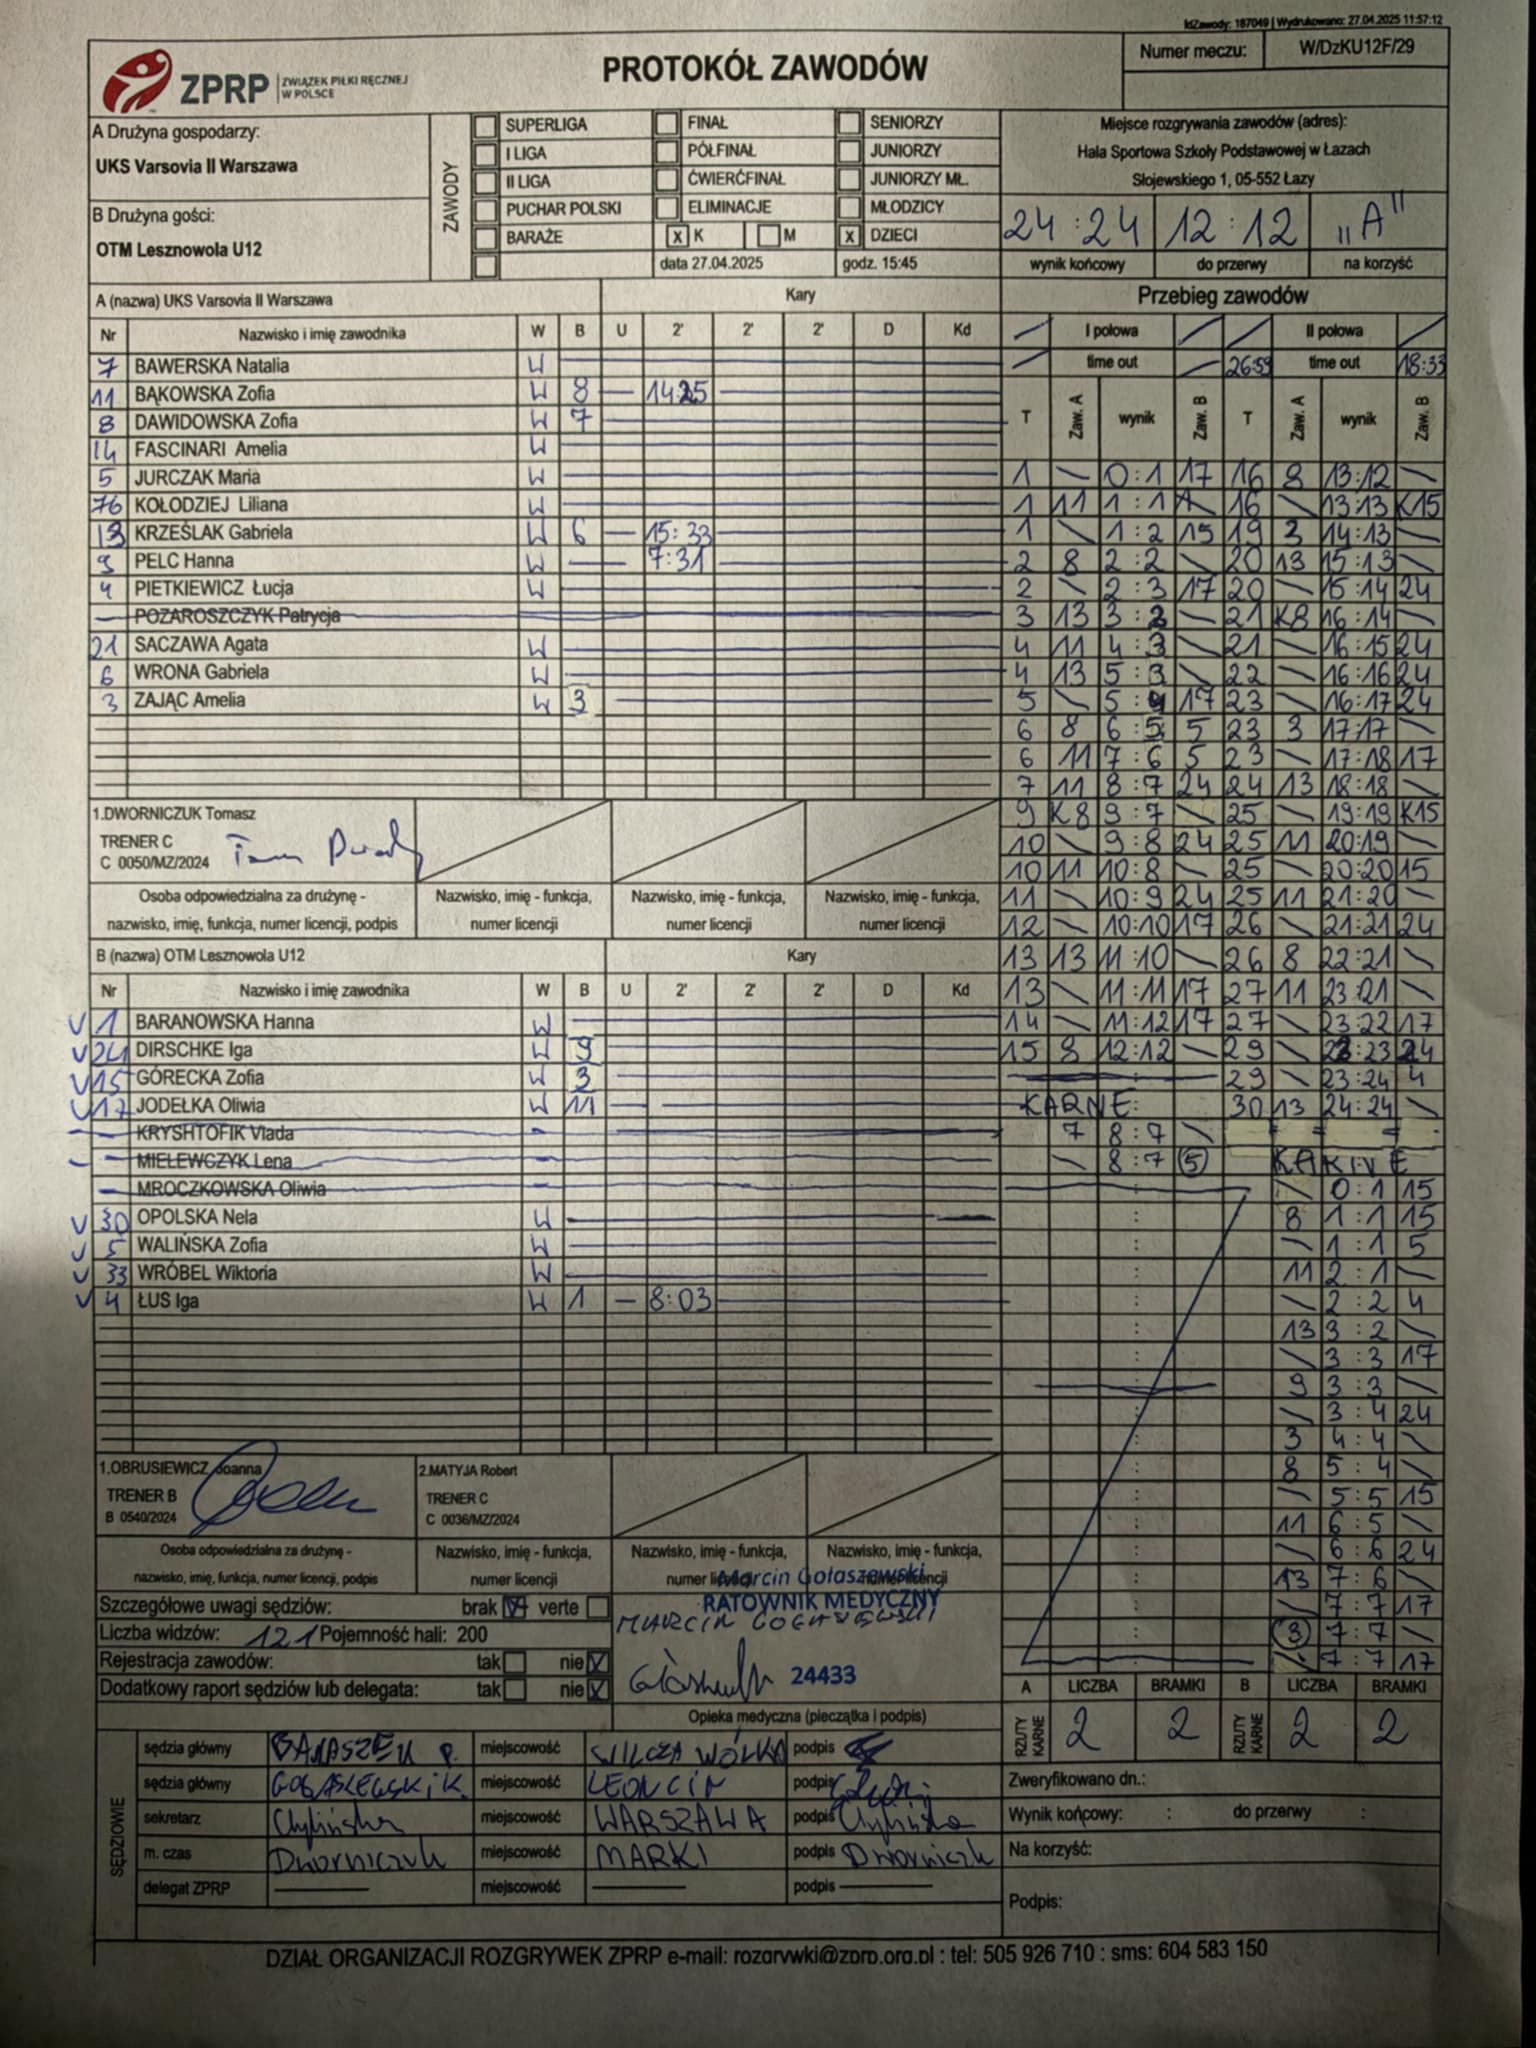 IdZawody: 187049 | Wydrukowano: 27.04.2025 11:57:12
ZPRP ZWIĄZEK PIŁKI RĘCZNEJ W POLSCE
PROTOKÓŁ ZAWODÓW
Numer meczu: W/DzKU12F/29
A Drużyna gospodarzy:
UKS Varsovia II Warszawa
B Drużyna gości:
OTM Lesznowola U12
ZAWODY
SUPERLIGA FINAŁ SENIORZY
I LIGA PÓŁFINAŁ JUNIORZY
II LIGA ĆWIERĆFINAŁ JUNIORZY MŁ.
PUCHAR POLSKI ELIMINACJE MŁODZICY
BARAŻE x K M x DZIECI
data 27.04.2025 godz. 15:45
Miejsce rozgrywania zawodów (adres):
Hala Sportowa Szkoły Podstawowej w Łazach
Słojewskiego 1, 05-552 Łazy
24:24 12:12 „A"
wynik końcowy do przerwy na korzyść
A (nazwa) UKS Varsovia II Warszawa Kary
Nr Nazwisko i imię zawodnika W B U 2' 2' 2' D Kd
7 BAWERSKA Natalia W
11 BĄKOWSKA Zofia W 8 — 14:25
8 DAWIDOWSKA Zofia W 7
14 FASCINARI Amelia W
5 JURCZAK Maria W
76 KOŁODZIEJ Liliana W
13 KRZEŚLAK Gabriela W 6 — 15:33
9 PELC Hanna W — 7:31
4 PIETKIEWICZ Łucja W
— POZAROSZCZYK Patrycja
21 SACZAWA Agata W
6 WRONA Gabriela W
3 ZAJĄC Amelia W 3
1.DWORNICZUK Tomasz
TRENER C
C 0050/MZ/2024
Osoba odpowiedzialna za drużynę - nazwisko, imię, funkcja, numer licencji, podpis
Nazwisko, imię - funkcja, numer licencji
Nazwisko, imię - funkcja, numer licencji
Nazwisko, imię - funkcja, numer licencji
B (nazwa) OTM Lesznowola U12 Kary
Nr Nazwisko i imię zawodnika W B U 2' 2' 2' D Kd
V 1 BARANOWSKA Hanna W
V 24 DIRSCHKE Iga W 9
V 15 GÓRECKA Zofia W 3
V 17 JODEŁKA Oliwia W 11
— KRYSHTOFIK Vlada —
— MIELEWCZYK Lena —
— MROCZKOWSKA Oliwia —
V 30 OPOLSKA Nela W
V 5 WALIŃSKA Zofia W
V 33 WRÓBEL Wiktoria W
V 4 ŁUS Iga W 1 — 8:03
1.OBRUSIEWICZ Joanna
TRENER B
B 0540/2024
2.MATYJA Robert
TRENER C
C 0036/MZ/2024
Osoba odpowiedzialna za drużynę - nazwisko, imię, funkcja, numer licencji, podpis
Nazwisko, imię - funkcja, numer licencji
Nazwisko, imię - funkcja, numer licencji
Nazwisko, imię - funkcja, numer licencji
Szczegółowe uwagi sędziów: brak V verte
Liczba widzów: 121 Pojemność hali: 200
Rejestracja zawodów: tak nie X
Dodatkowy raport sędziów lub delegata: tak nie X
Marcin Gołaszewski
RATOWNIK MEDYCZNY
24433
Opieka medyczna (pieczątka i podpis)
SĘDZIOWIE
sędzia główny BANASZEK P. miejscowość WILCZA WÓLKA podpis
sędzia główny GOŁASZEWSKI K. miejscowość LEONCIN podpis
sekretarz Chylińska miejscowość WARSZAWA podpis Chylińska
m. czas Dworniczuk miejscowość MARKI podpis Dworniczuk
delegat ZPRP — miejscowość — podpis —
Przebieg zawodów
I połowa II połowa
time out 26:59 time out 18:33
T Zaw. A wynik Zaw. B T Zaw. A wynik Zaw. B
1 \ 0:1 17 16 8 13:12 \
1 11 1:1 \ 16 \ 13:13 K15
1 \ 1:2 15 19 3 14:13 \
2 8 2:2 \ 20 13 15:13 \
2 \ 2:3 17 20 \ 15:14 24
3 13 3:3 \ 21 K8 16:14 \
4 11 4:3 \ 21 \ 16:15 24
4 13 5:3 \ 22 \ 16:16 24
5 \ 5:4 17 23 \ 16:17 24
6 8 6:5 5 23 3 17:17 \
6 11 7:6 5 23 \ 17:18 17
7 11 8:7 24 24 13 18:18 \
9 K8 9:7 \ 25 \ 19:19 K15
10 \ 9:8 24 25 11 20:19 \
10 11 10:8 \ 25 \ 20:20 15
11 \ 10:9 24 25 11 21:20 \
12 \ 10:10 17 26 \ 21:21 24
13 13 11:10 \ 26 8 22:21 \
13 \ 11:11 17 27 11 23:21 \
14 \ 11:12 17 27 \ 23:22 17
15 8 12:12 \ 29 \ 23:23 24
29 \ 23:24 4
KARNE 30 13 24:24 \
7 8:7 \
\ 8:7 (5) KARNE
\ 0:1 15
8 1:1 15
\ 1:1 5
11 2:1 \
\ 2:2 4
13 3:2 \
\ 3:3 17
9 3:3 \
\ 3:4 24
3 4:4 \
8 5:4 \
\ 5:5 15
11 6:5 \
\ 6:6 24
13 7:6 \
\ 7:7 17
(3) 7:7 \
\ 7:7 17
A LICZBA BRAMKI B LICZBA BRAMKI
RZUTY KARNE 2 2 RZUTY KARNE 2 2
Zweryfikowano dn.:
Wynik końcowy: : do przerwy :
Na korzyść:
Podpis:
DZIAŁ ORGANIZACJI ROZGRYWEK ZPRP e-mail: rozgrywki@zprp.org.pl : tel: 505 926 710 : sms: 604 583 150